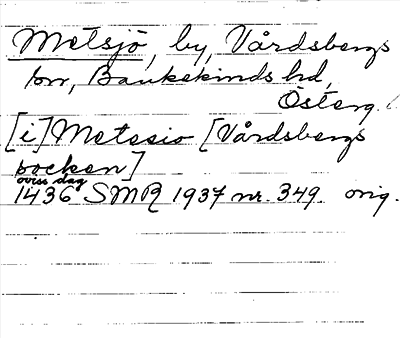 Metsjö, by, Vårdsbergs
sn, Bankekinds hd,
Österg.
[i] Metesio [Vårdsbergs
socken]
oviss dag
1436 SMR 1937 nr. 349. orig.